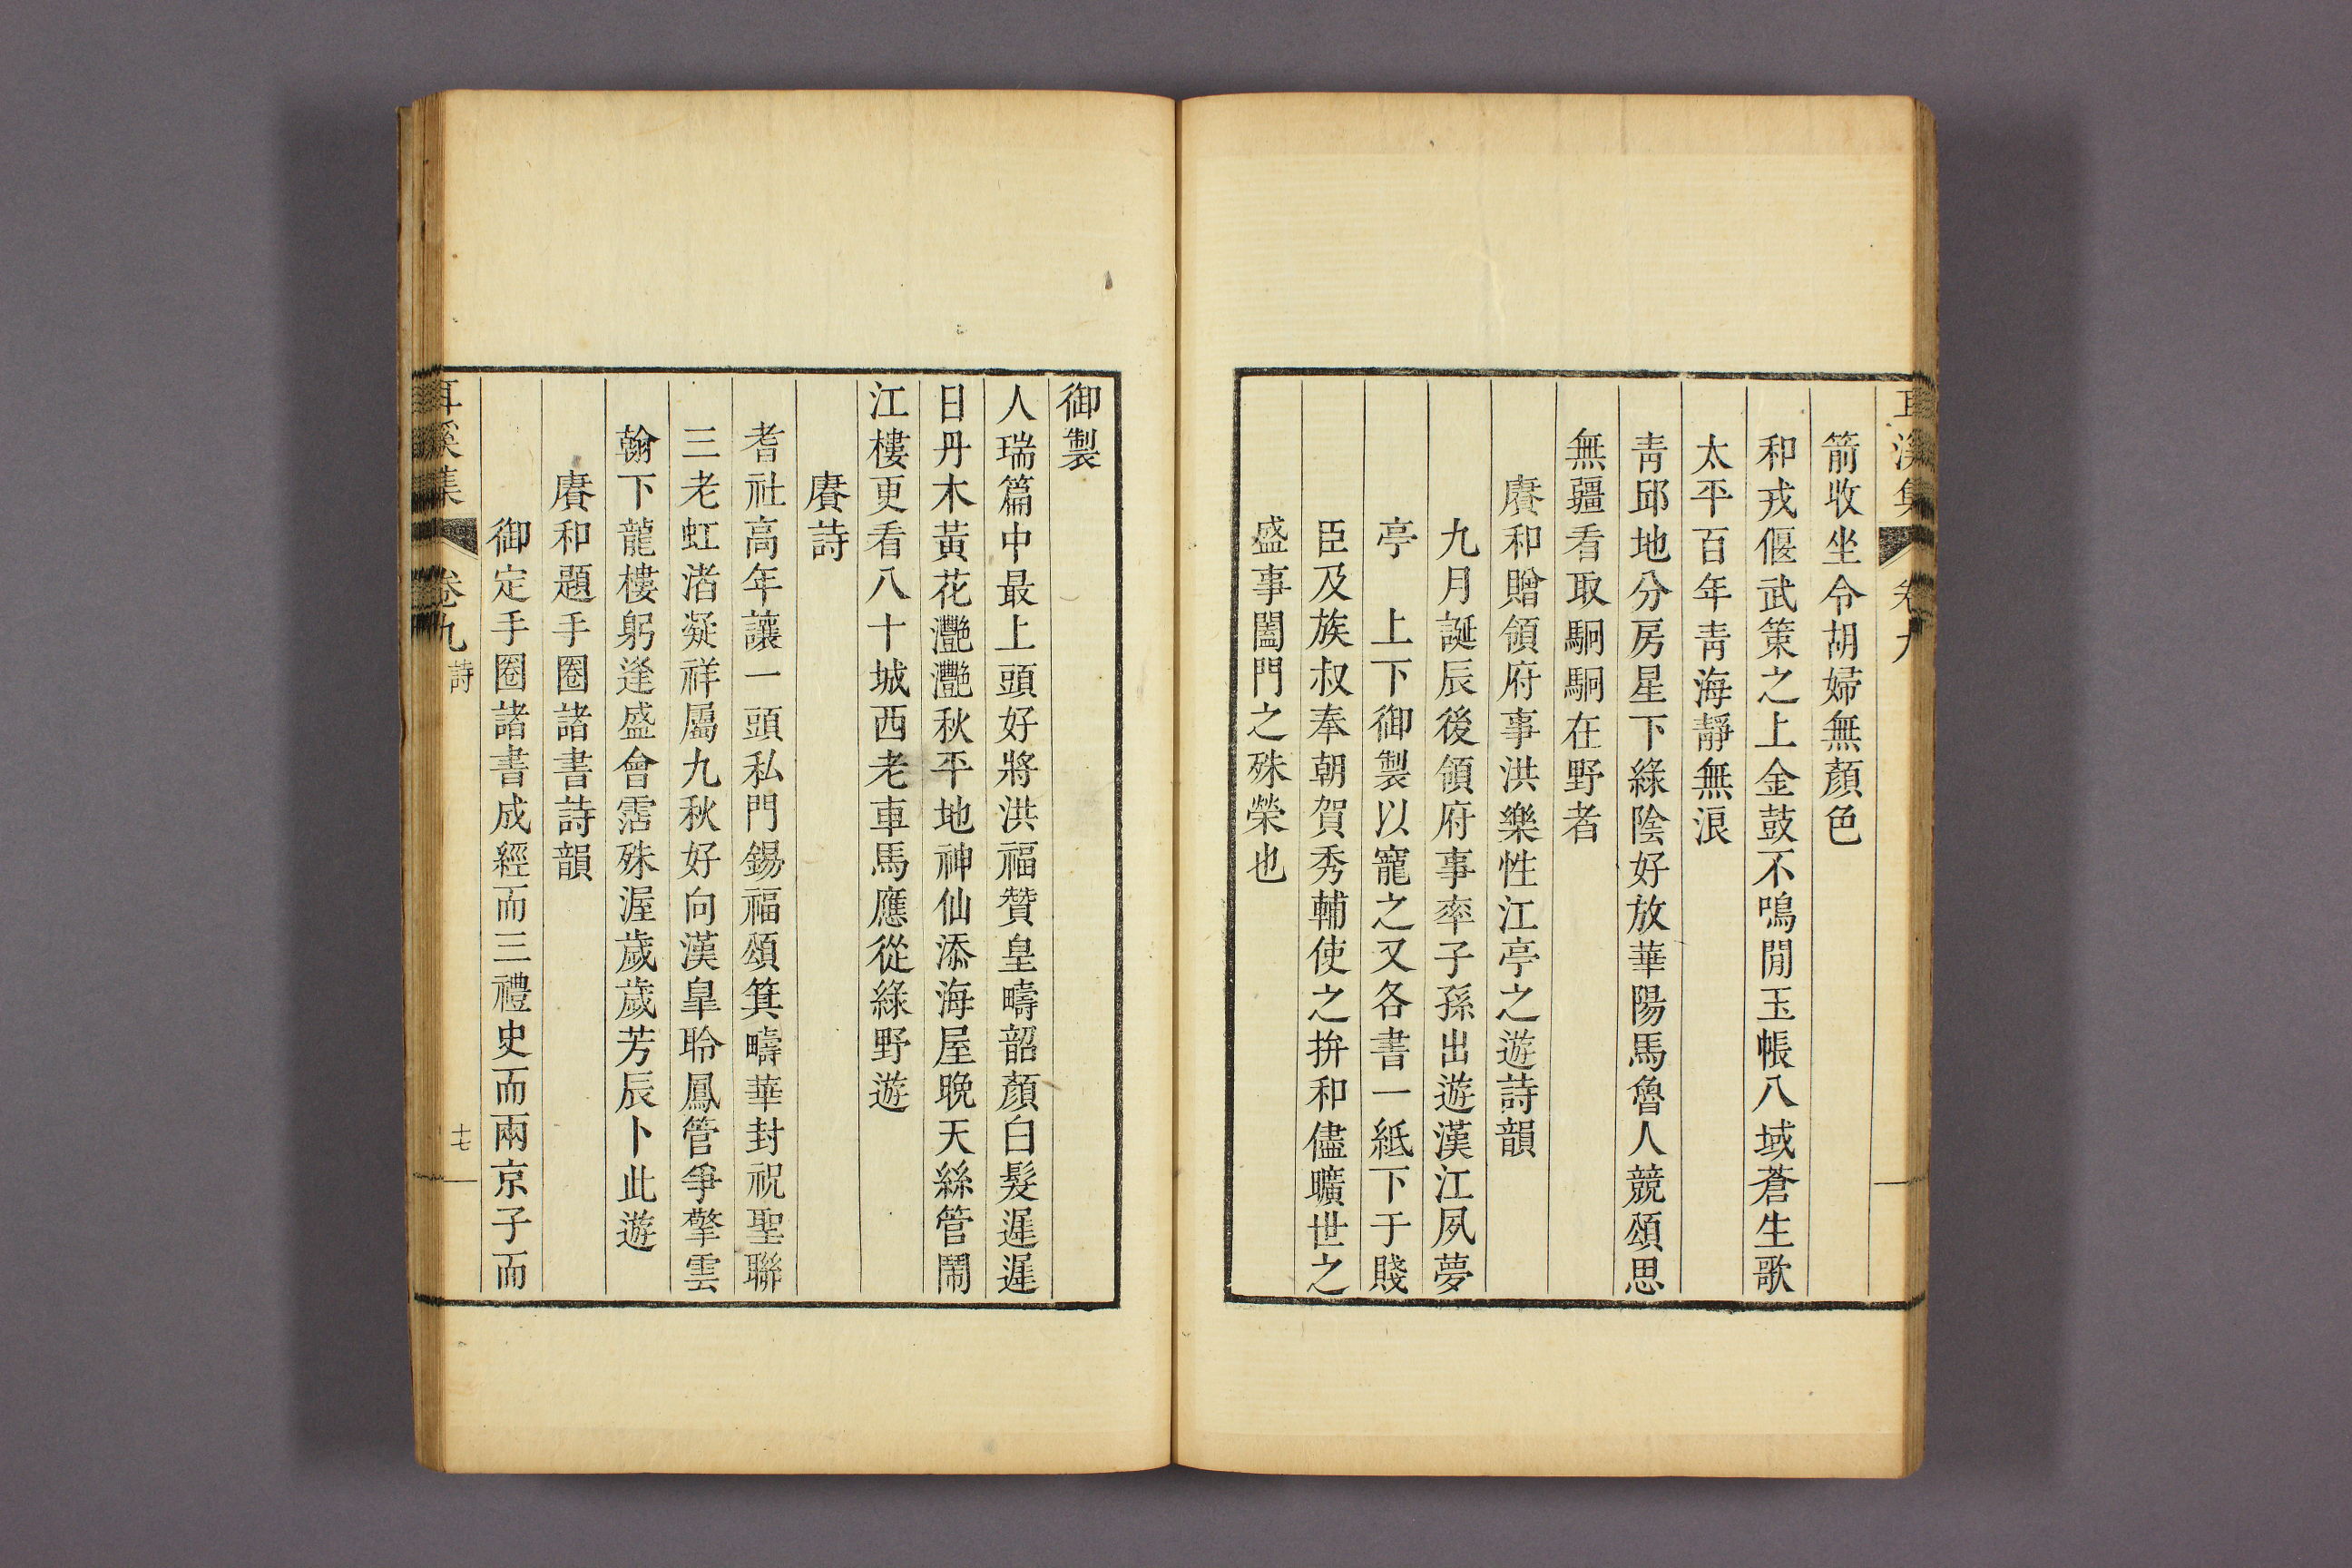 耳溪集 卷九
箭收坐令胡婦無顏色
和戎偃武策之上金鼓不鳴閒玉帳八域蒼生歌
太平百年靑海靜無浪
靑邱地分房星下綠陰好放華陽馬魯人競頌思
無疆看取駉駉在野者
賡和贈領府事洪樂性江亭之遊詩韻
九月誕辰後領府事率子孫出遊漢江夙夢
亭 上下御製以寵之又各書一紙下于賤
臣及族叔奉朝賀秀輔使之拚和儘曠世之
盛事闔門之殊榮也
御製
人瑞篇中最上頭好將洪福贊皇疇韶顏白髮遲遲
日丹木黃花灔灔秋平地神仙添海屋晩天絲管鬧
江樓更看八十城西老車馬應從綠野遊
賡詩
耆社高年讓一頭私門錫福頌箕疇華封祝聖聯
三老虹渚凝祥屬九秋好向漢臯聆鳳管爭擎雲
翰下龍樓躬逢盛會霑殊渥歲歲芳辰卜此遊
賡和題手圈諸書詩韻
御定手圈諸書成經而三禮史而兩京子而
耳溪集 卷九 詩 十七